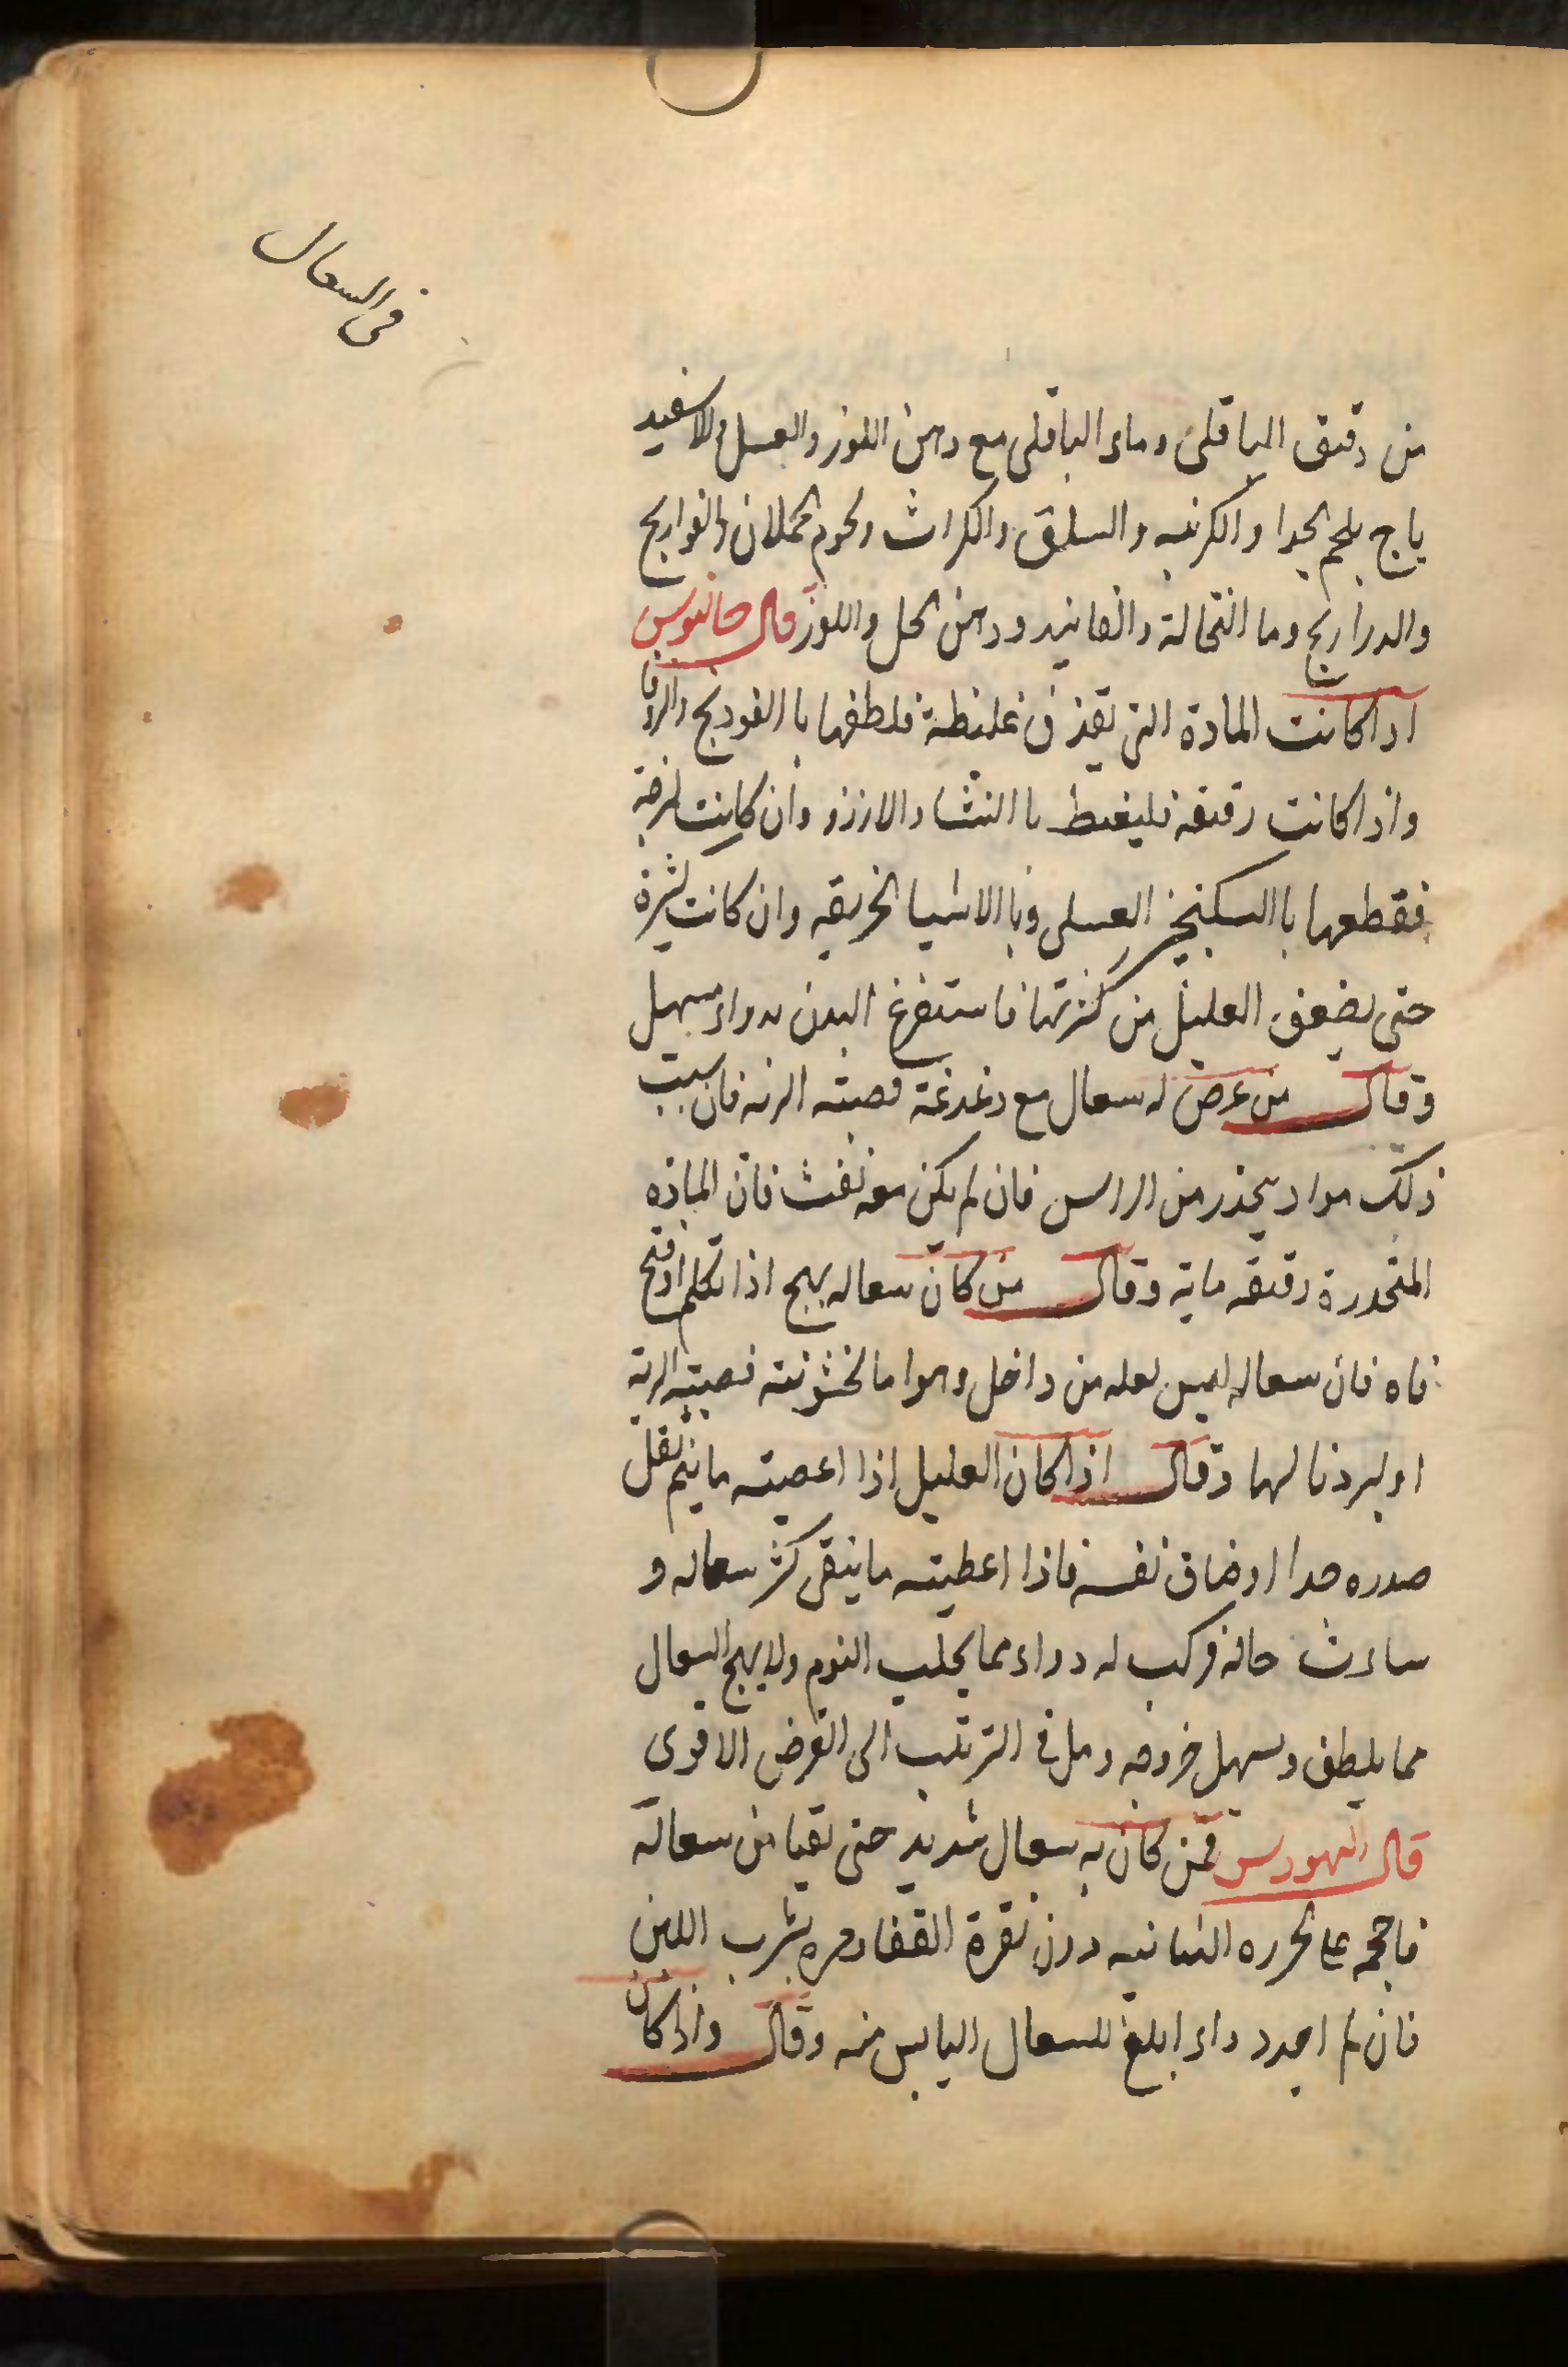 في السعال
من دقيق الباقلى وماء الباقلى مع دهن اللوز والعسل والاسفيد
باج بلحم الجدا والكرنبه والسلق والكراث ولحوم الحملان والفواريج
والدراريج وما النخالة والفانيد ودهن الحل واللوز قال جالنوس
اذا كانت المادة التي تقذف غليظة فلطفها با الفودنج والزوفا
واذا كانت رقيقه فليغلظ با النشا والارزو وان كانت لزجة
فقطعها با السكنجبين العسلي وبا الاشيا الحريفه وان كانت كثيرة
حتى يضعف العليل من كثرتها فاستفرغ البدن بدواء مسهل
وقال من عرض له سعال مع دغدغة قصبته الرئه فان سبب
ذلك مواد ينحذر من الراس فان لم يكن معه نفث فان الماده
المنحدرة رقيقه مايه وقال من كان سعاله يهيج اذا تكلم او فتح
فاه فان سعاله ليس لعله من داخل وهوا ما لخشونته قصبته الرية
او لبرد نالها وقال اذا كان العليل اذا اعصيته ما ينيم ثقل
صدره جدا او ضاق نفسه فاذا اعطيته ما ينقي كثر سعاله و
ساءت حاله فركب له دواء مما يجلب النوم ولا يهيج السعال
مما يلطف ويسهل خروجه ومل في الترتيب الى الغرض الاقوى
قال فمن كان به سعال شديد حتى تقيا من سعاله
فاحجمه على الخرزه الثمانيه دون نقرة القفا ومره بشرب اللبن
فان لم اجد دواء ابلغ للسعال اليابس منه وقال واذا كان